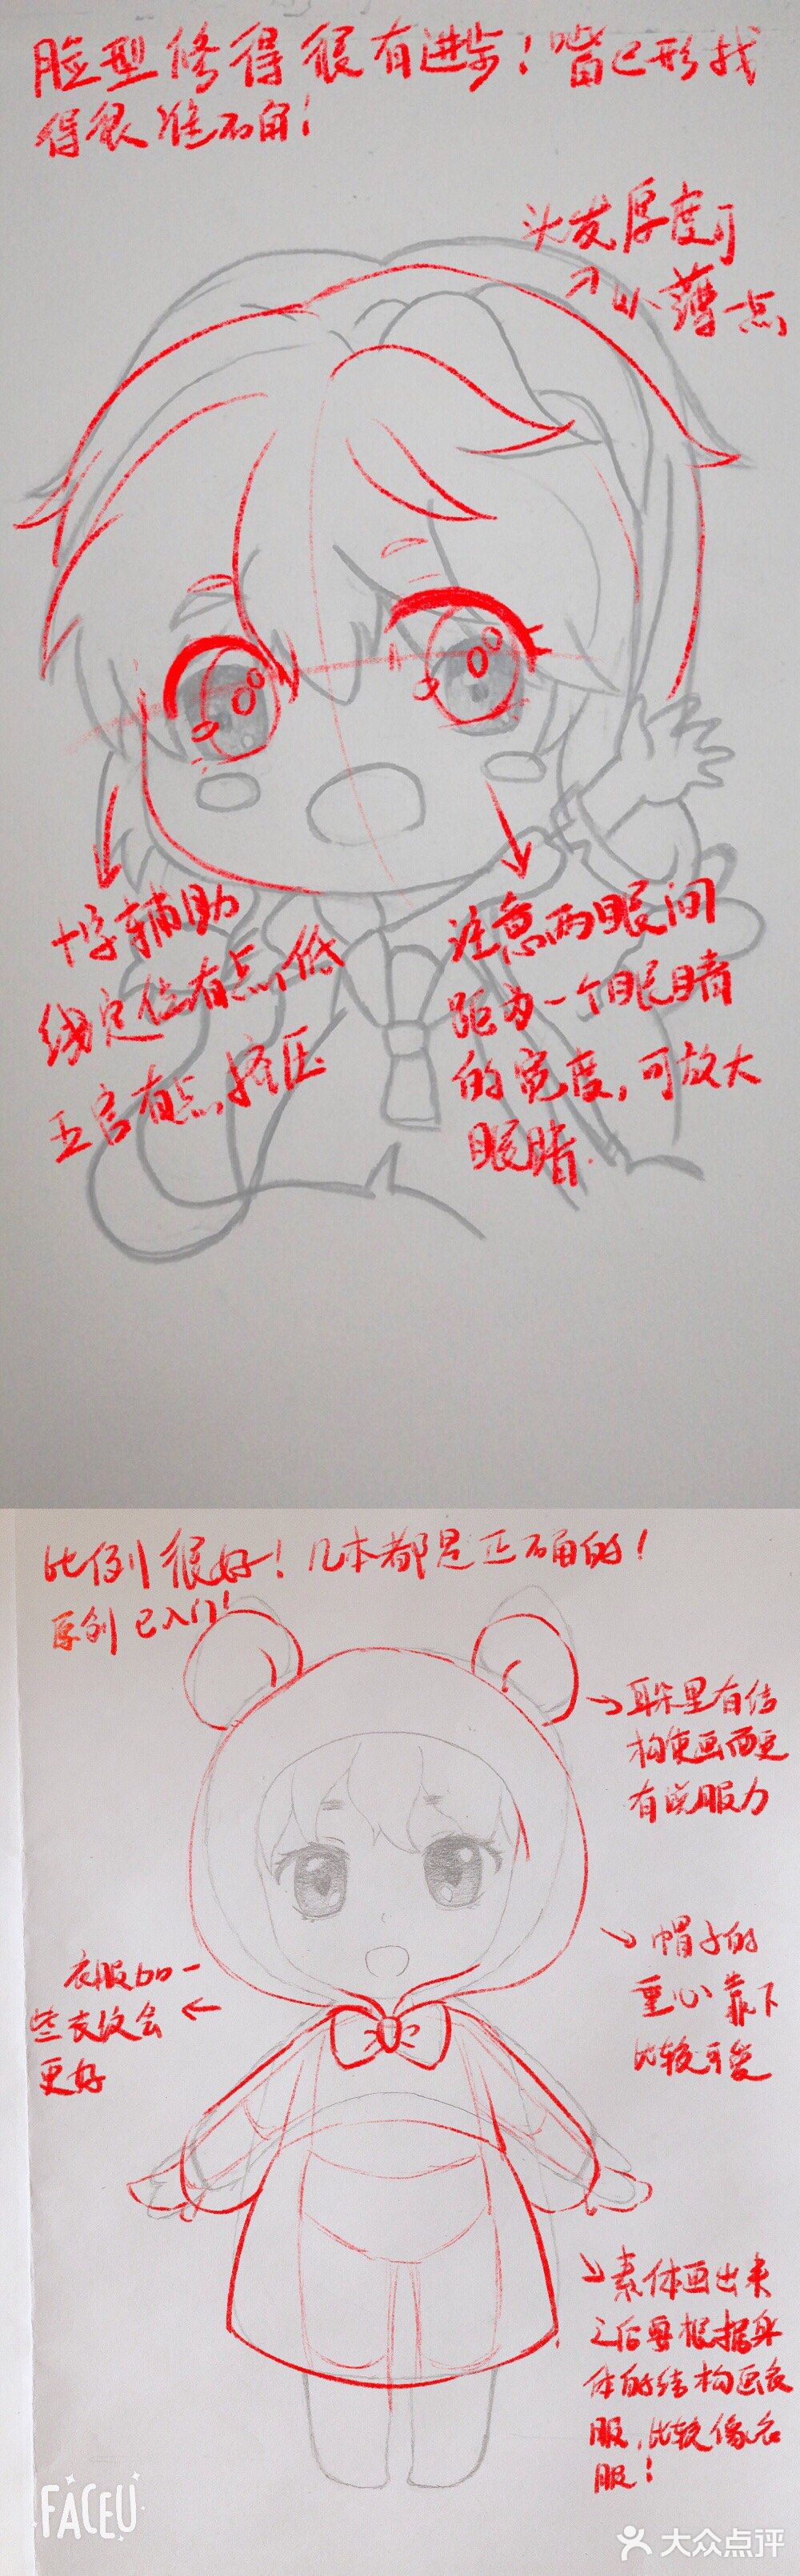 脸型修得很有进步！嘴巴形找
得很准确！
头发厚度可
以薄一点
十字辅助
线定位有点低
五官有点挤压
注意两眼间
距为一个眼睛
的宽度，可放大
眼睛.
比例很好！几本都是正确的！
原创已入门！
耳朵里有结
构使画面更
有说服力
帽子的
重心靠下
比较可爱
衣服加一
些衣纹会
更好
素体画出来
之后要根据身
体的结构画衣
服，比较像衣
服！
FACEU
大众点评